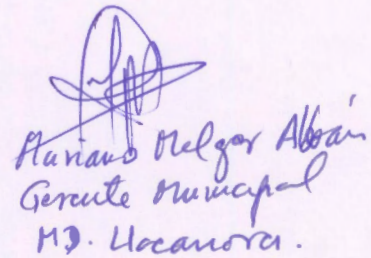 Mariano Melgar Albán
Gerente Municipal
MD. Llacanora.